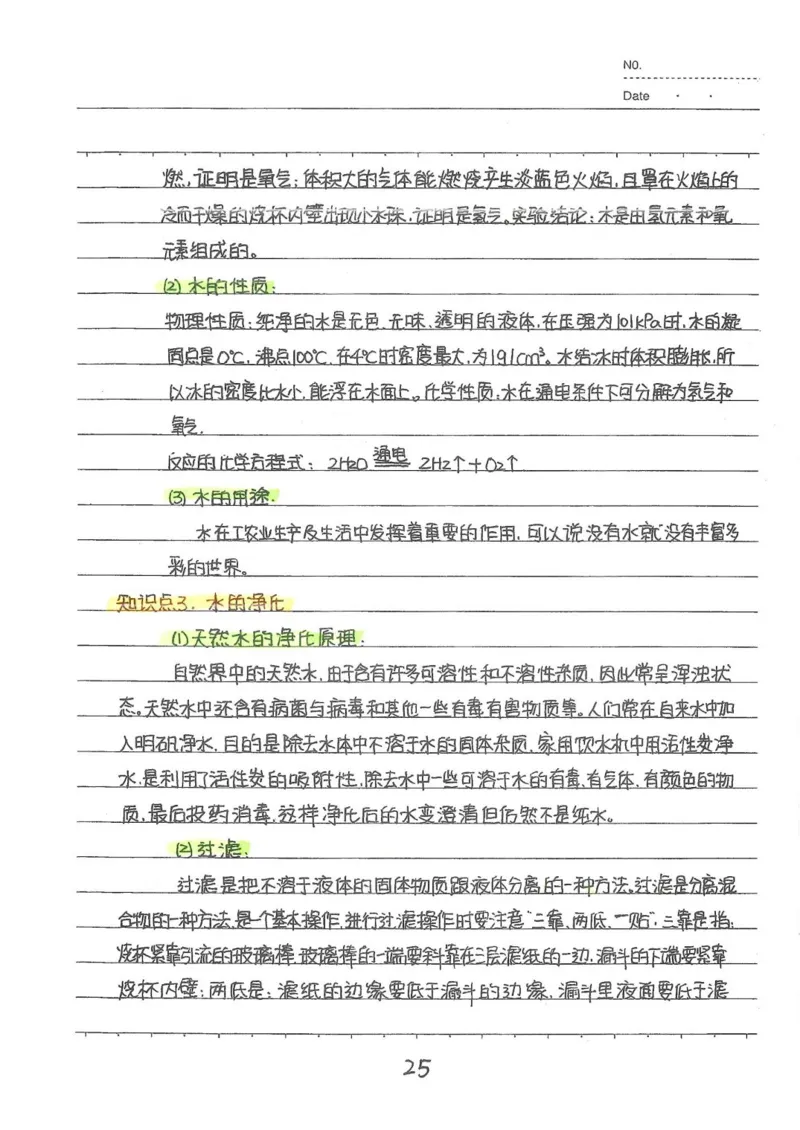 NO.
Date · ·
燃,证明是氧气;体积大的气体能燃烧产生淡蓝色火焰,且罩在火焰上的
冷而干燥的烧杯内壁出现小水珠,证明是氢气。实验结论:水是由氢元素和氧
元素组成的。
(2) 水的性质:
物理性质:纯净的水是无色、无味、透明的液体,在压强为101kPa时,水的凝
固点是0℃,沸点100℃.在4℃时密度最大,为1g1cm³。水结冰时体积膨胀,所
以冰的密度比水小,能浮在水面上。化学性质:水在通电条件下可分解为氢气和
氧气.
反应的化学方程式: 2H2O 通电 2H2↑+O2↑
(3) 水的用途.
水在工农业生产及生活中发挥着重要的作用,可以说没有水就没有丰富多
彩的世界。
知识点3. 水的净化
(1)天然水的净化原理:
自然界中的天然水,由于含有许多可溶性和不溶性杂质,因此常呈浑浊状
态。天然水中还含有病菌与病毒和其他一些有毒有害物质等。人们常在自来水中加
入明矾净水,目的是除去水体中不溶于水的固体杂质,家用饮水机中用活性炭净
水,是利用了活性炭的吸附性,除去水中一些可溶于水的有毒、有气体、有颜色的物
质,最后投药消毒,这样净化后的水变澄清但仍然不是纯水。
(2)过滤:
过滤是把不溶于液体的固体物质跟液体分离的一种方法。过滤是分离混
合物的一种方法,是一个基本操作,进行过滤操作时要注意“三靠、两低、一贴”,三靠是指:
烧杯紧靠引流的玻璃棒,玻璃棒的一端要斜靠在三层滤纸的一边,漏斗的下端要紧靠
烧杯内壁;两低是:滤纸的边缘要低于漏斗的边缘,漏斗里液面要低于滤
25